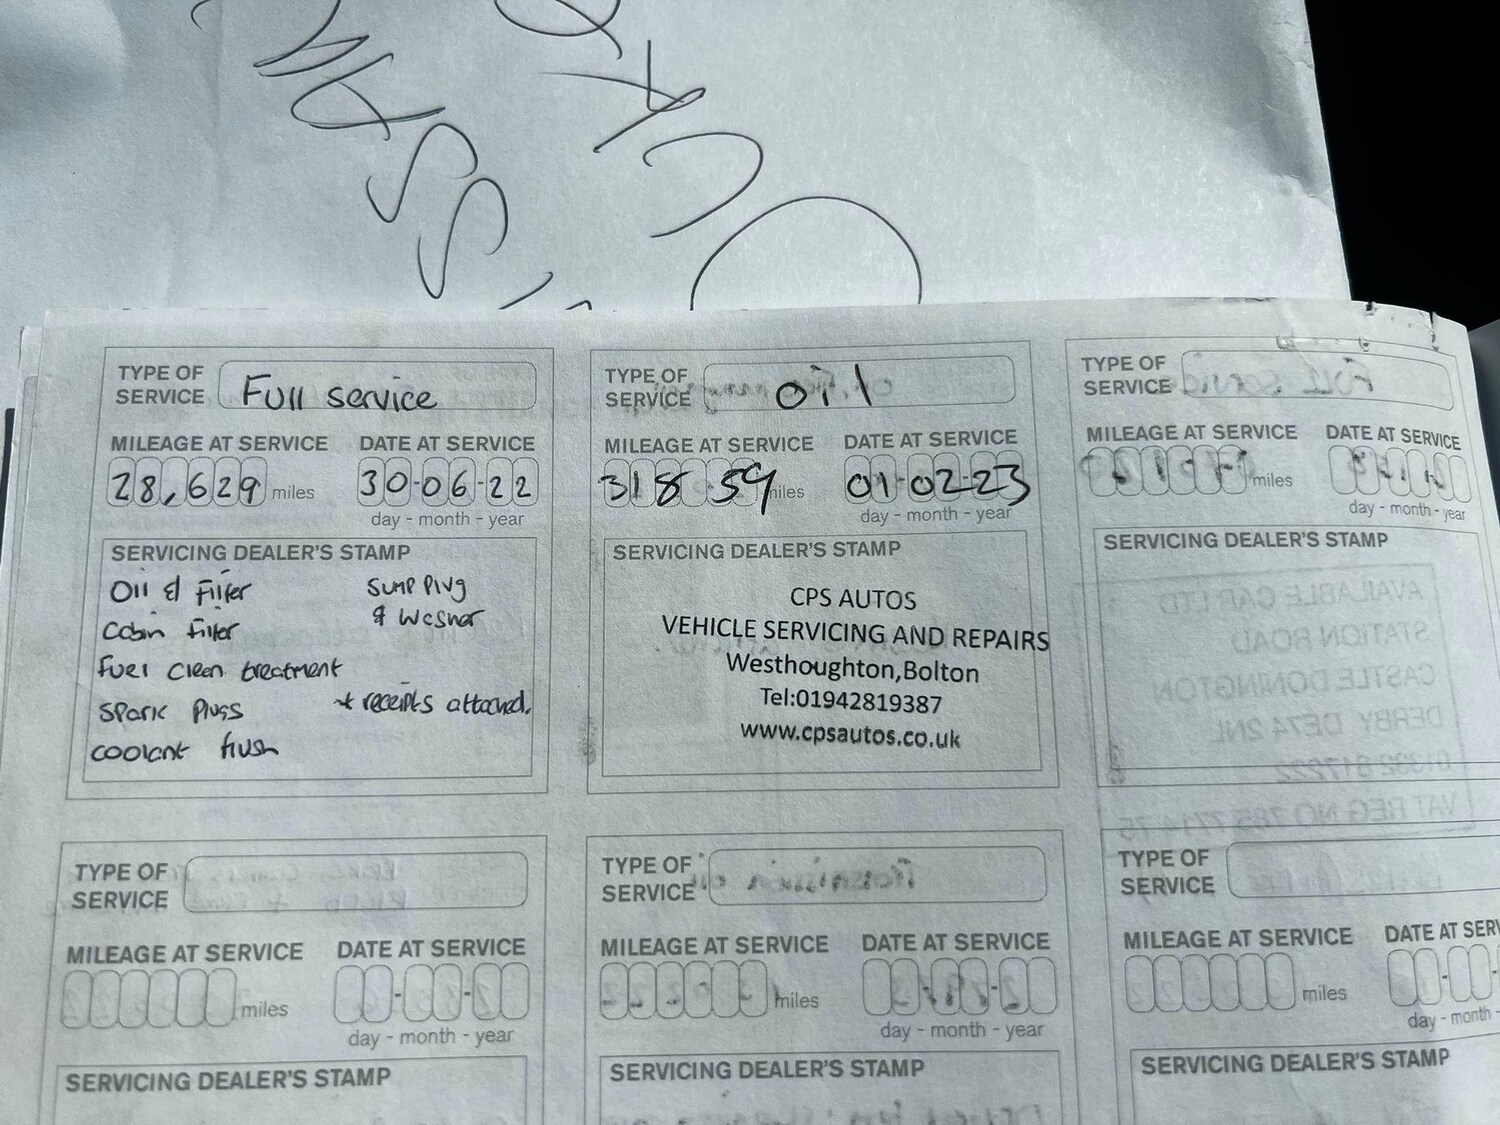 TYPE OF SERVICE Full service
MILEAGE AT SERVICE DATE AT SERVICE
28,629 miles 30-06-22
day - month - year
SERVICING DEALER'S STAMP
Oil & Filter
Cabin Filter
Fuel Clean treatment
Spark Plugs
Coolant flush
Sump Plug
& Washer
* receipts attached.
TYPE OF SERVICE oil
MILEAGE AT SERVICE DATE AT SERVICE
31859 miles 01-02-23
day - month - year
SERVICING DEALER'S STAMP
CPS AUTOS
VEHICLE SERVICING AND REPAIRS
Westhoughton,Bolton
Tel:01942819387
www.cpsautos.co.uk
TYPE OF SERVICE
MILEAGE AT SERVICE DATE AT SERVICE
miles
day - month - year
SERVICING DEALER'S STAMP
TYPE OF SERVICE
MILEAGE AT SERVICE DATE AT SERVICE
miles
day - month - year
SERVICING DEALER'S STAMP
TYPE OF SERVICE
MILEAGE AT SERVICE DATE AT SERVICE
miles
day - month - year
SERVICING DEALER'S STAMP
TYPE OF SERVICE
MILEAGE AT SERVICE DATE AT SERV
miles
day - month -
SERVICING DEALER'S STAMP